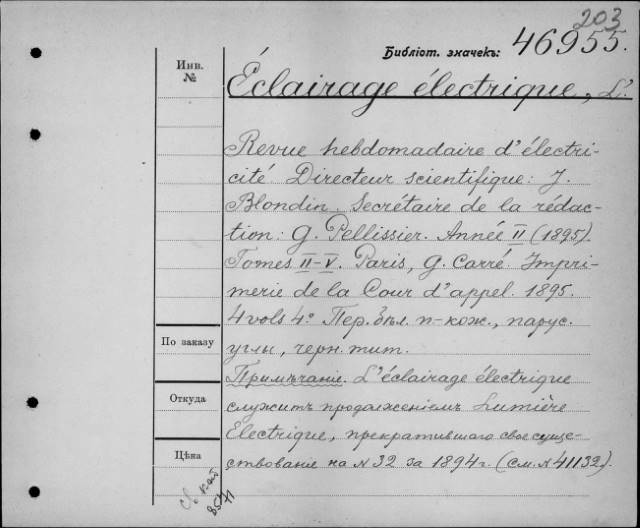 203
Библіот. значекъ: 46955.
Инв.
№
Éclairage électrique, L'
Revue hebdomadaire d'électri-
cité Directeur scientifique: J.
Blondin. Secrétaire de la rédac-
tion: G. Pellissier. Année II (1895).
Tomes II-V. Paris, G. Carré. Impri-
merie de la Cour d'appel. 1895.
4 vols 4º Пер. п-кож., парус.
По заказу
углы, черн. тит.
Примѣчаніе. L'éclairage électrique
Откуда
служитъ продолженіемъ Lumière
Electrique, прекратившаго свое суще-
Цѣна
ствованіе на N 32 за 1894 г. (см. N 41132).